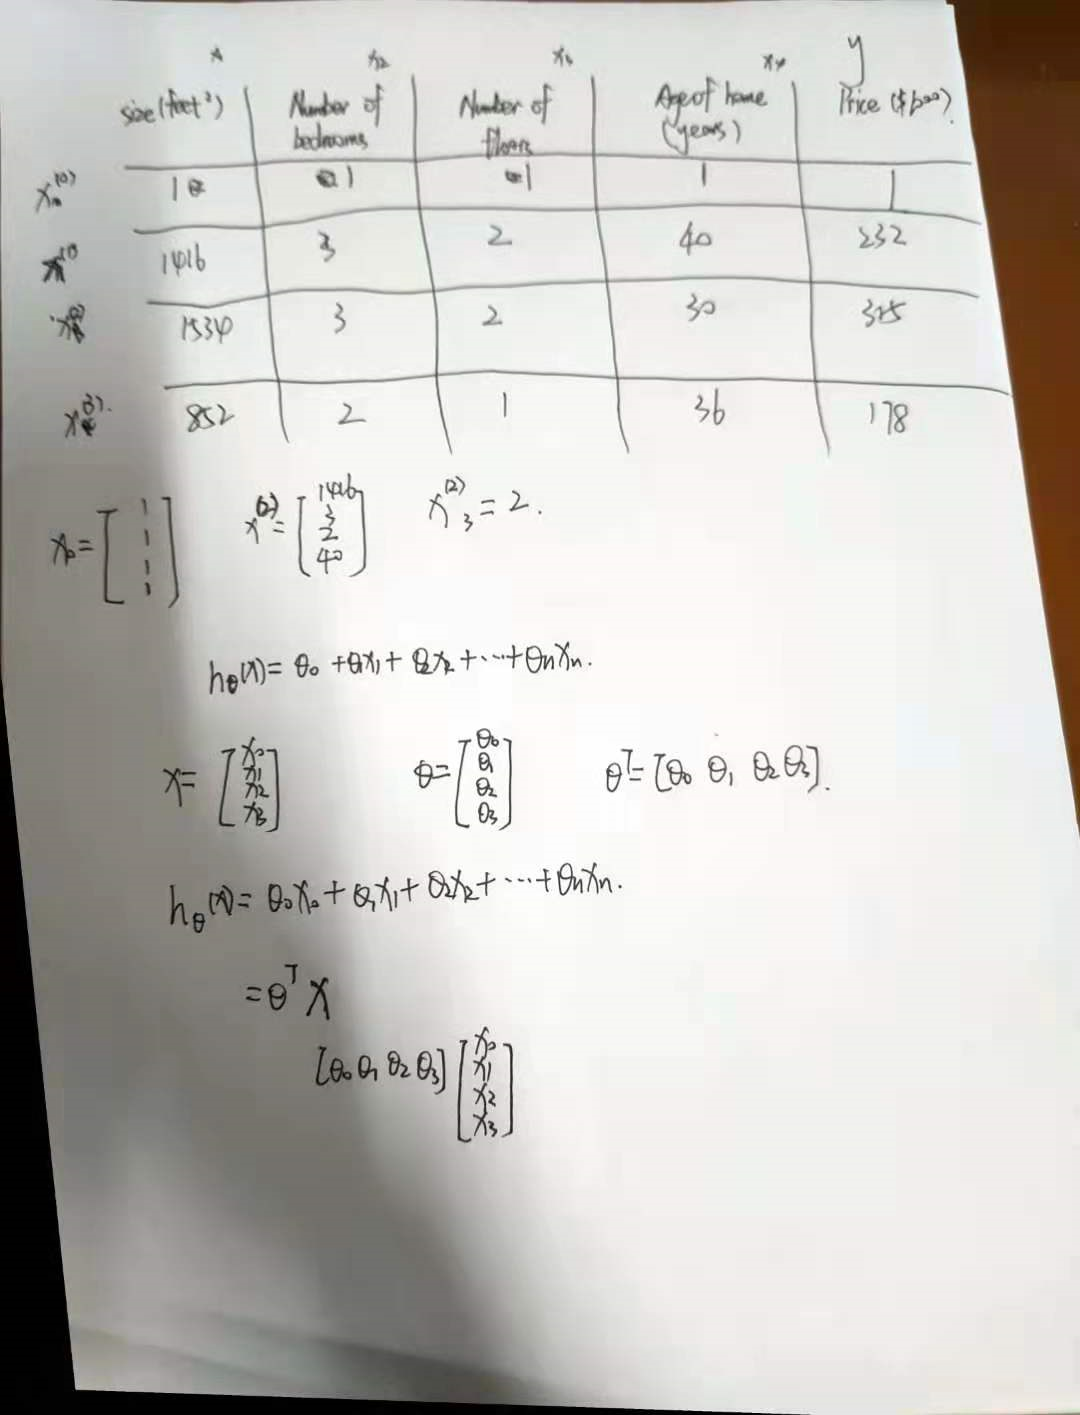 x₂ x₄ y
size (feet²) Number of bedrooms Number of floors Age of home (years) Price ($1,000)
x⁽⁰⁾ 1 1 1 1 1
x⁽¹⁾ 1416 3 2 40 232
1534 3 2 30 315
x⁽³⁾ 852 2 1 36 178
x₀ = [1 1 1 1] x⁽²⁾ = [1416 3 2 40] x₃⁽²⁾ = 2.
hθ(x) = θ₀ + θ₁x₁ + θ₂x₂ + ··· + θₙxₙ.
x = [x₀ x₁ x₂ x₃] θ = [θ₀ θ₁ θ₂ θ₃] θᵀ = [θ₀ θ₁ θ₂ θ₃].
hθ(x) = θ₀x₀ + θ₁x₁ + θ₂x₂ + ··· + θₙxₙ.
= θᵀ X
[θ₀ θ₁ θ₂ θ₃] [x₀ x₁ x₂ x₃]